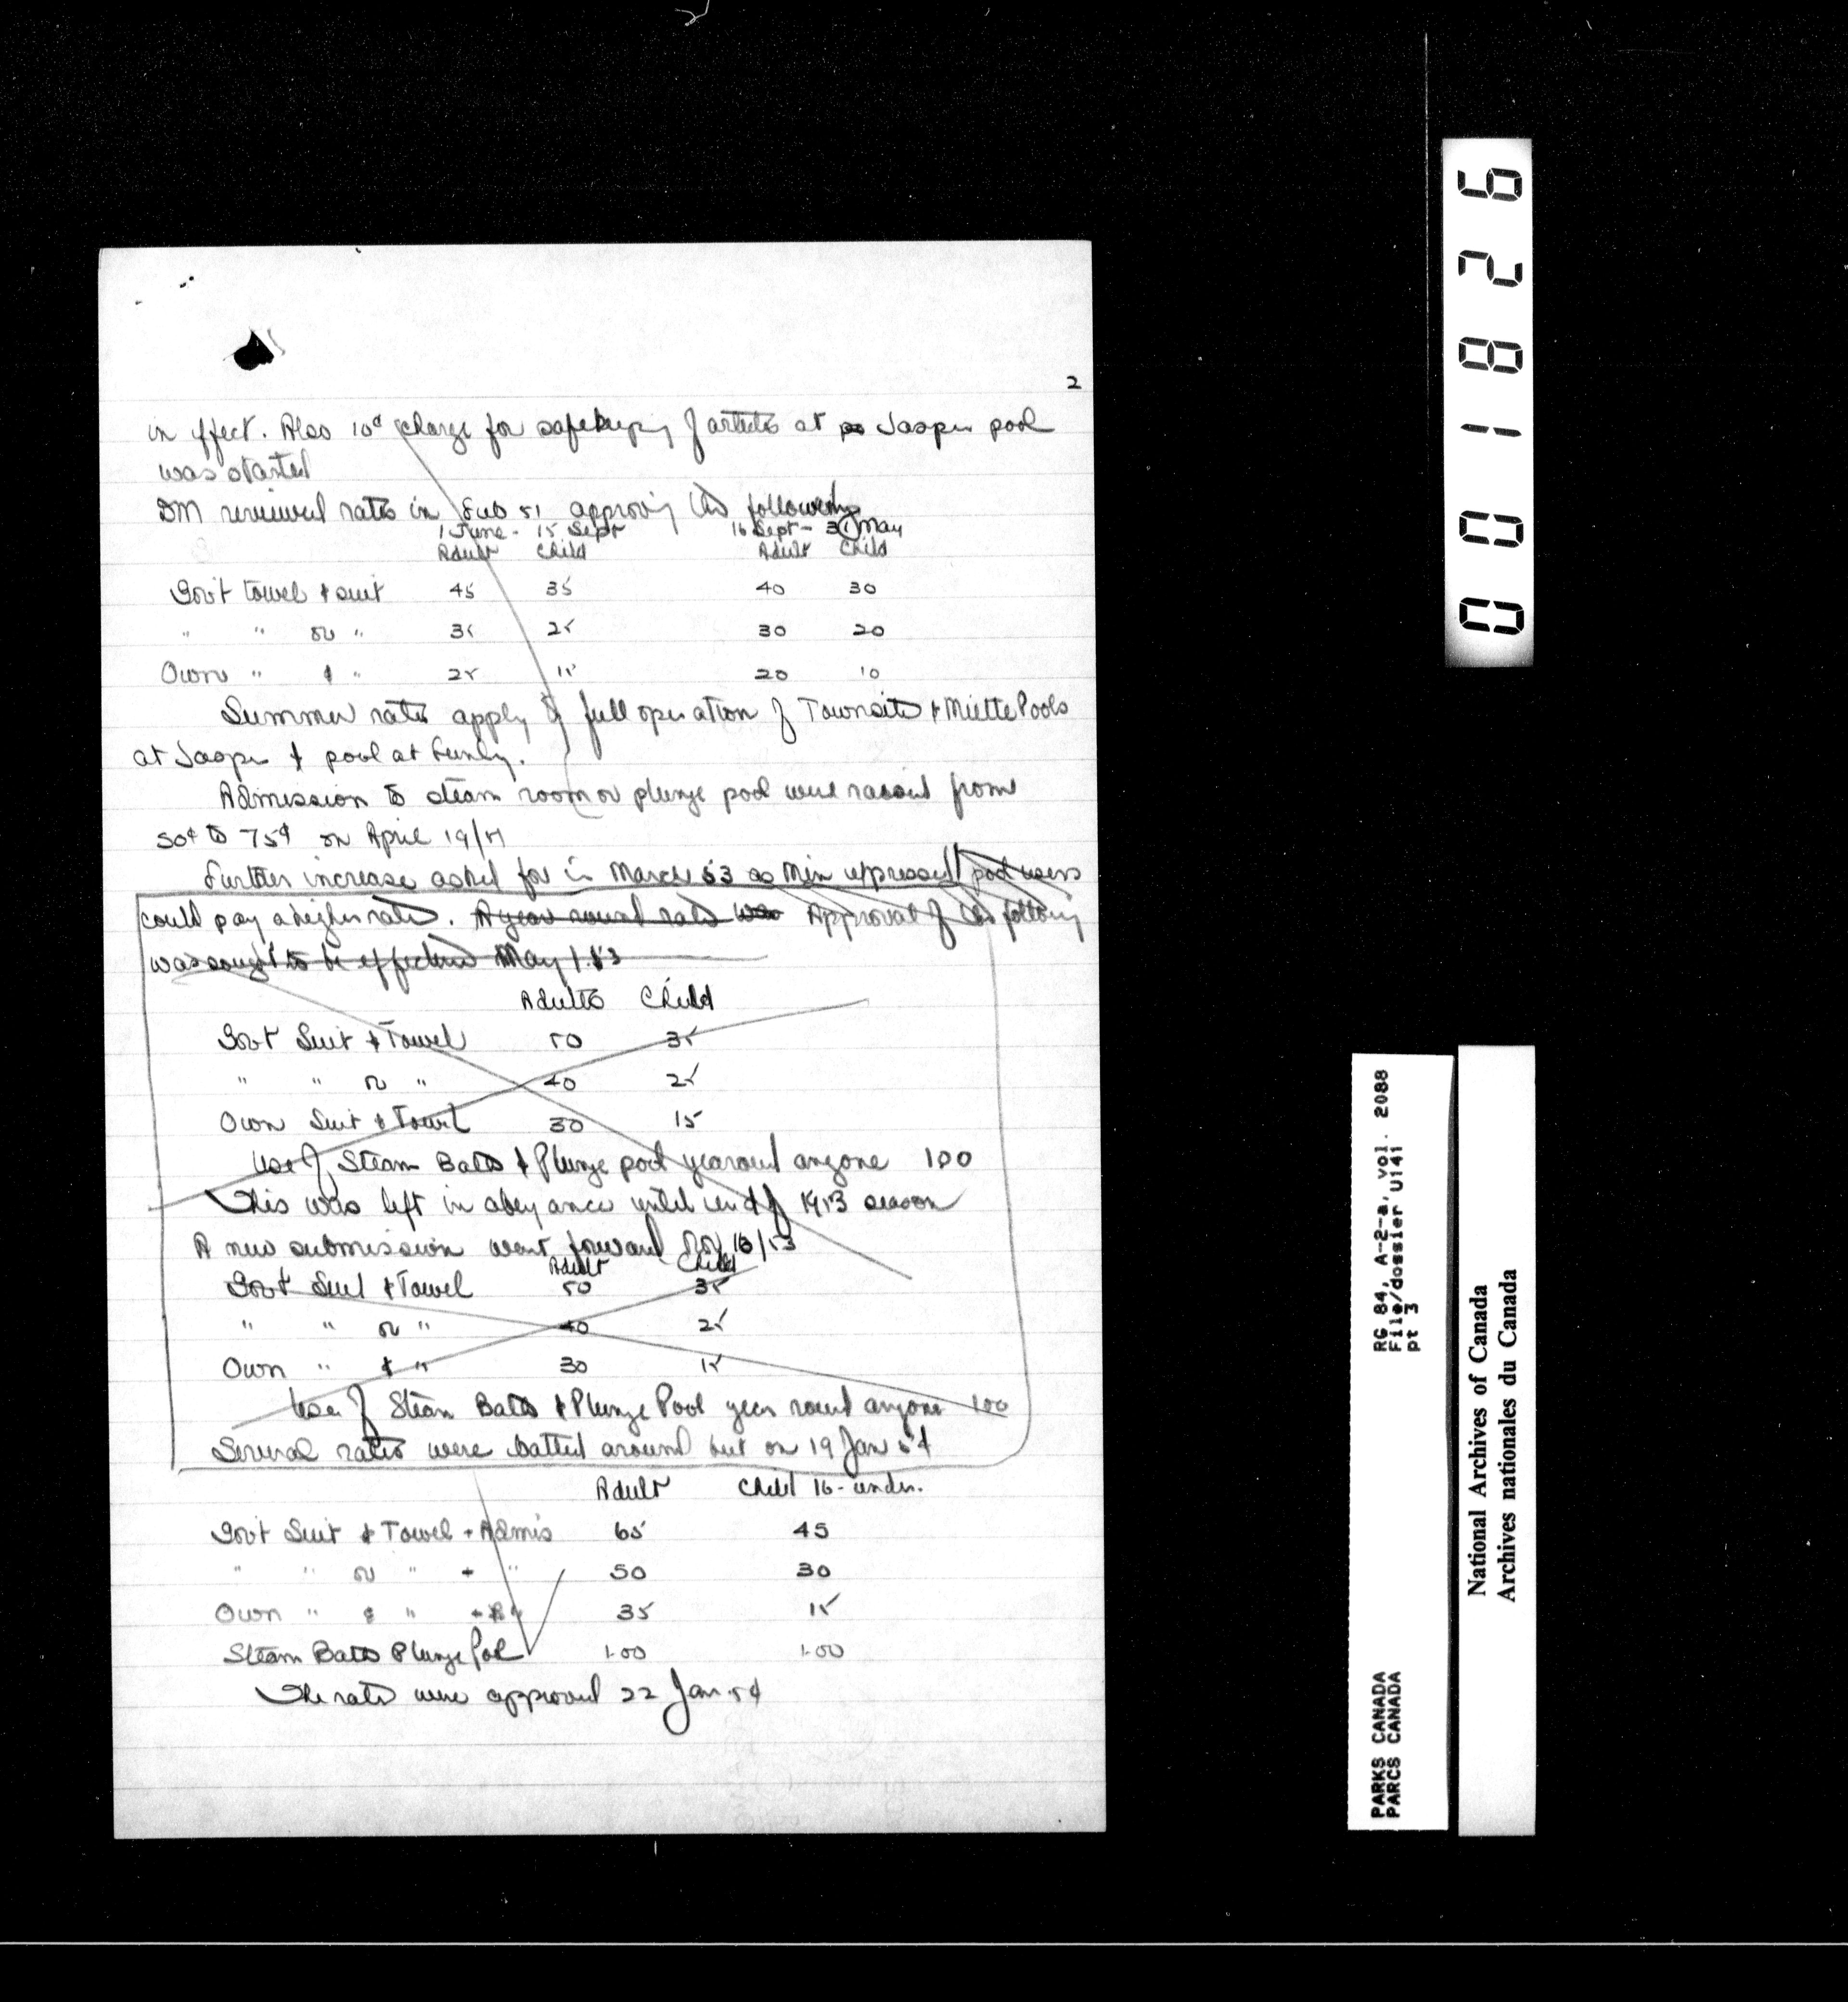 2
in effect. Also 10¢ charge for safekeeping of articles at Jasper pool
was started
DM reviewed rates in Feb 51 approving the following
1 June - 15 Sept 16 Sept - 31 May
Adult Child Adult Child
Gov't towel & suit 45 35 40 30
" " or " 35 25 30 20
Own " & " 25 15 20 10
Summer rates apply to full operation of Townsite & Miette Pools
at Jasper & pool at Fundy.
Admission to steam room or plunge pool were raised from
50¢ to 75¢ on April 19/51
Further increase asked for in March 53 as Min expressed pool users
could pay a higher rate. A year round rate was Approval of the following
was sought to be effective May 1.53
Adults Child
Govt Suit & Towel 50 35
" " or " 40 25
Own Suit & Towel 30 15
Use of Steam Baths & Plunge pool year round anyone 100
This was left in abeyance until end of 1953 season
A new submission went forward Nov 16/53
Adult Child
Govt Suit & Towel 50 35
" " or " 40 25
Own " & " 30 15
Use of Steam Baths & Plunge Pool year round anyone 100
Several rates were batted around but on 19 Jan 54
Adult Child 16 - under.
Gov't Suit & Towel + Admis 65 45
" " or " + " 50 30
Own " & " + 35 15
Steam Baths Plunge Pool 1.00 1.00
The rates were approved 22 Jan. 54
001826
RG 84, A-2-a, vol. 2088
File/dossier U141
pt 3
PARKS CANADA
PARCS CANADA
National Archives of Canada
Archives nationales du Canada